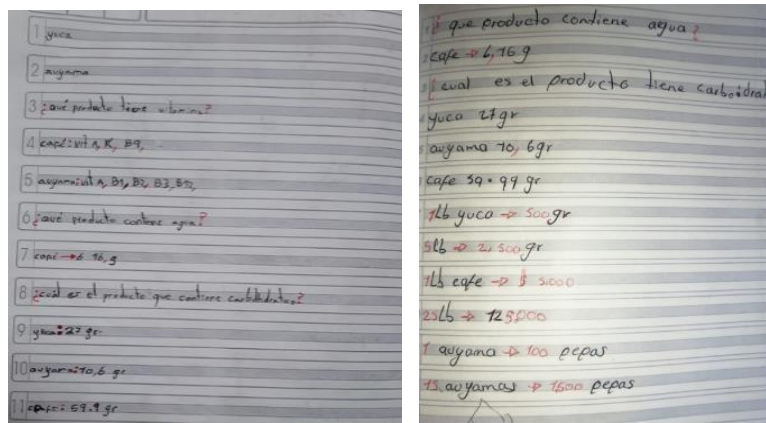 1 yuca
2 auyama
3 ¿qué producto tiene vitamina?
4 café: vit A, K, B9,
5 auyama: vit A, B1, B2, B3, B12
6 ¿qué producto contiene agua?
7 café → 6 16, g
8 ¿cuál es el producto que contiene carbohidratos?
9 yuca: 27 gr.
10 auyama: 10,6 gr
11 café: 59.9 gr
¿ que producto contiene agua?
cafe → 6,16 g
¿cual es el producto tiene carboidrat
yuca 27gr
auyama 10,6gr
cafe 59.99 gr
1Lb yuca → 500gr
5Lb → 2,500gr
1Lb cafe → $ 5.000
25Lb → 125.000
1 auyama → 100 pepas
15 auyamas → 1500 pepas